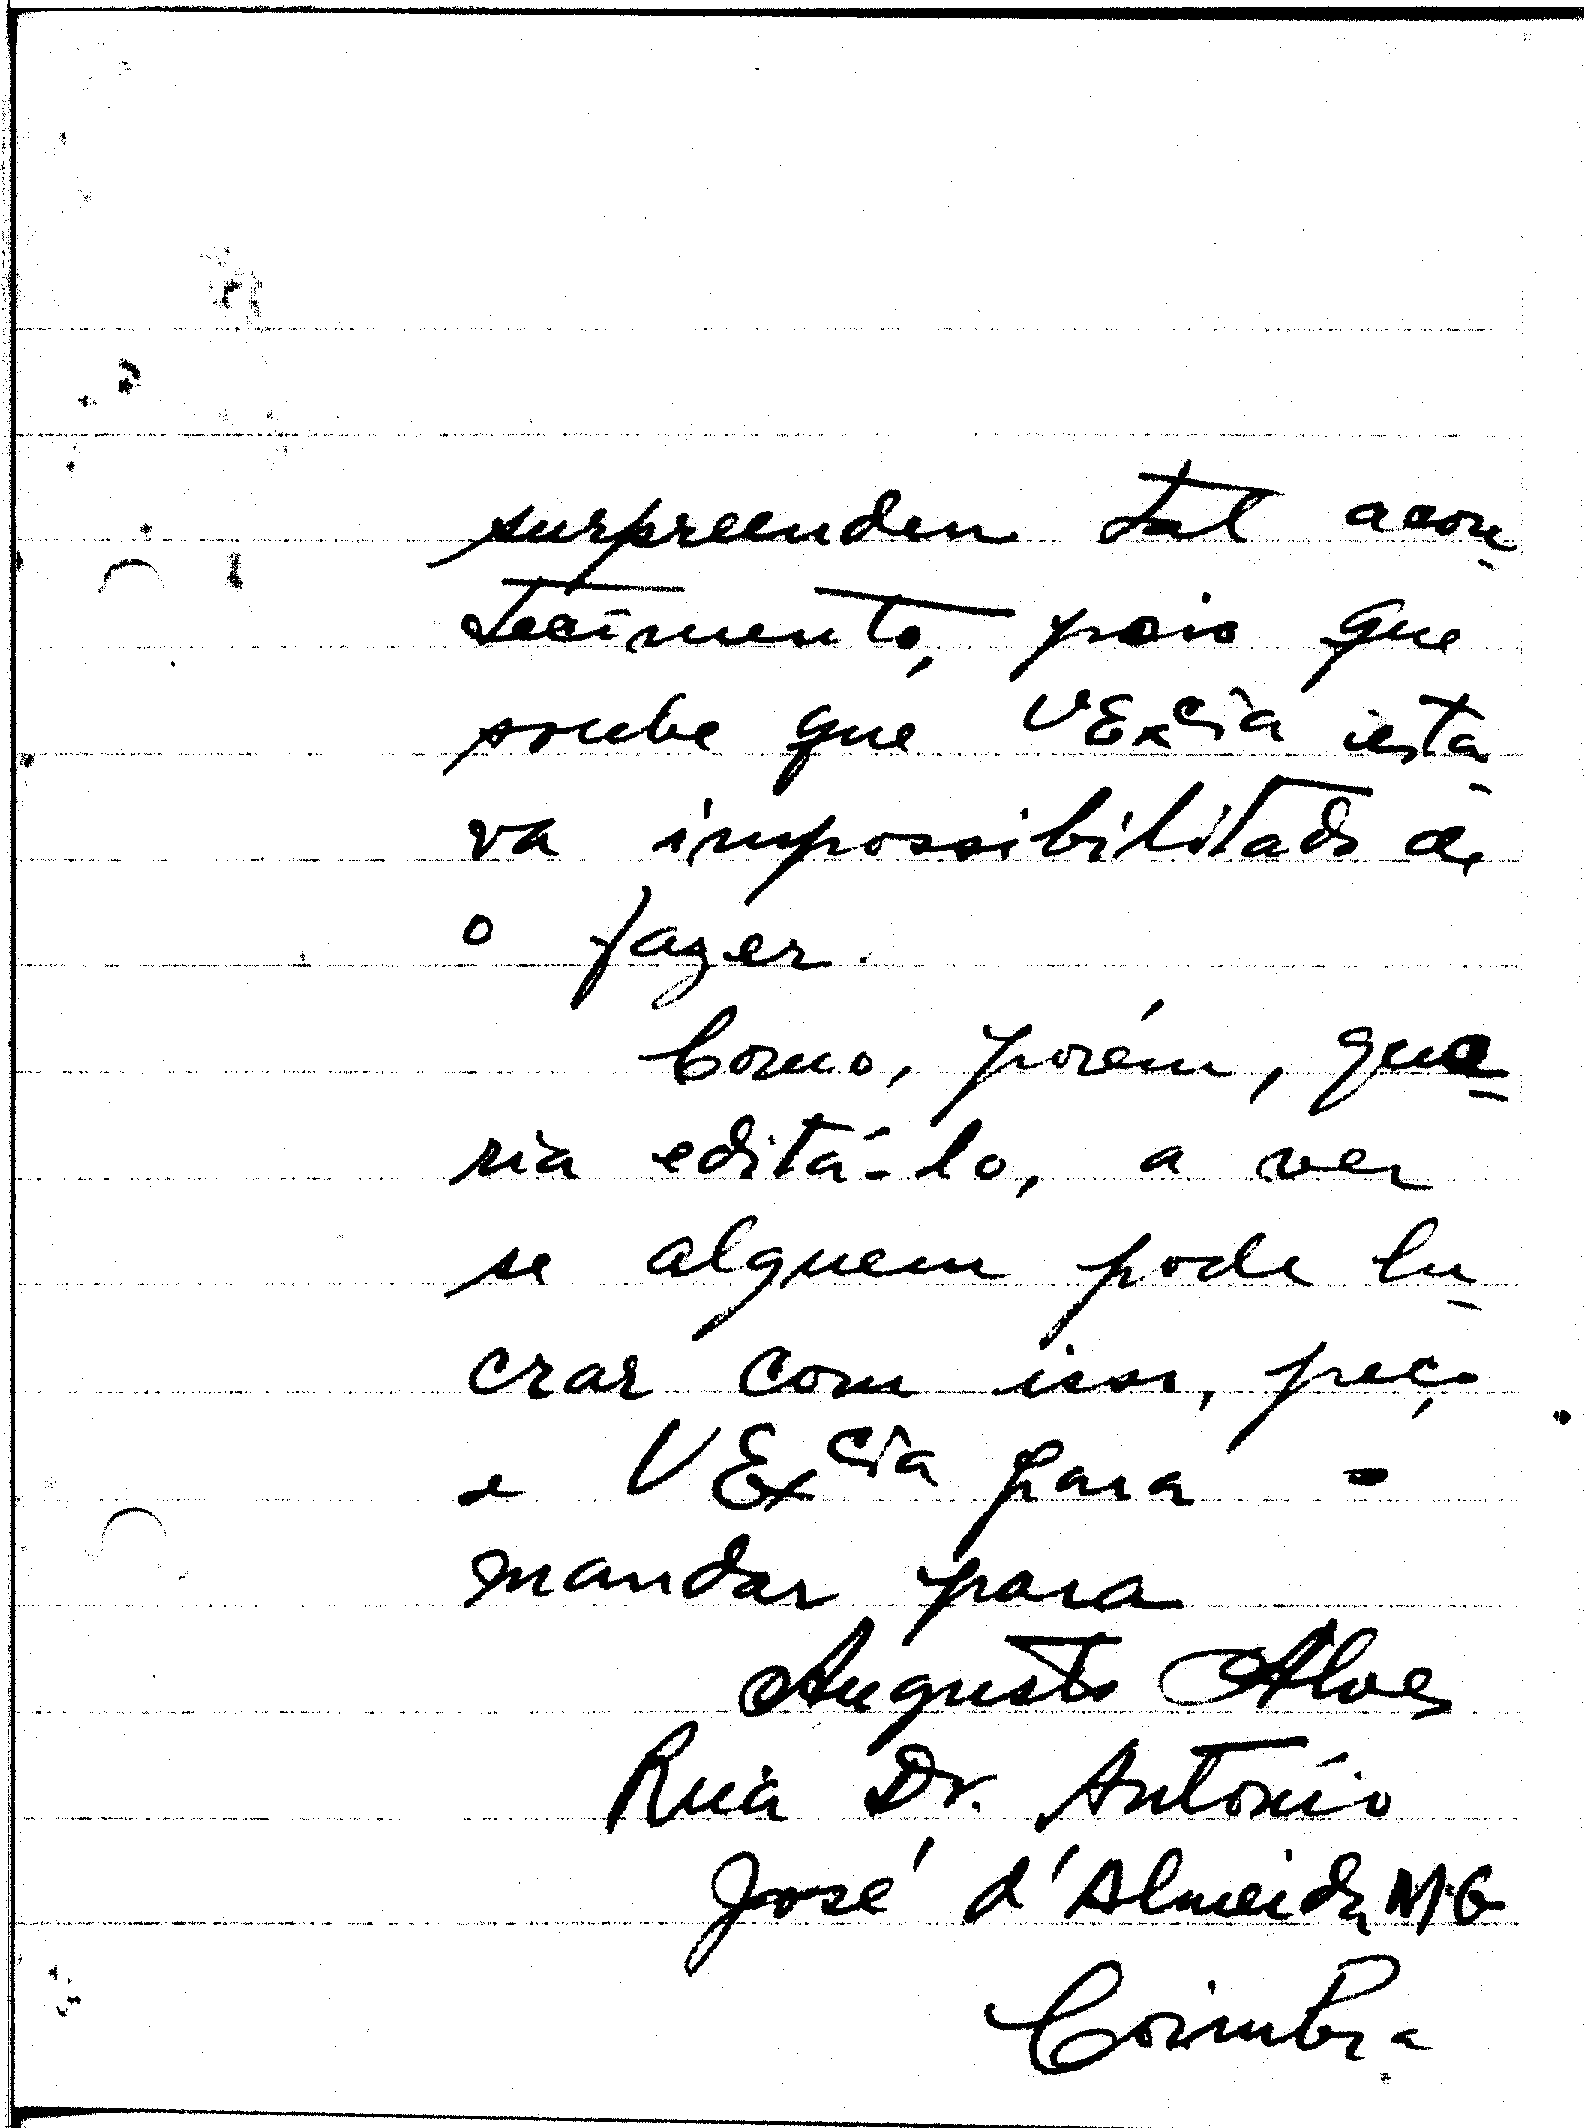 surpreendeu tal acon-
tecimento, pois que
soube que VExcia esta-
va impossibilitado de
o fazer.
Como, porém, que-
ria editá-lo, a ver
se alguem pode lu-
crar com isso, peço
a VExcia para o
mandar para
Augusto Alves
Rua Dr. António
José d'Almeida M G
Coimbra